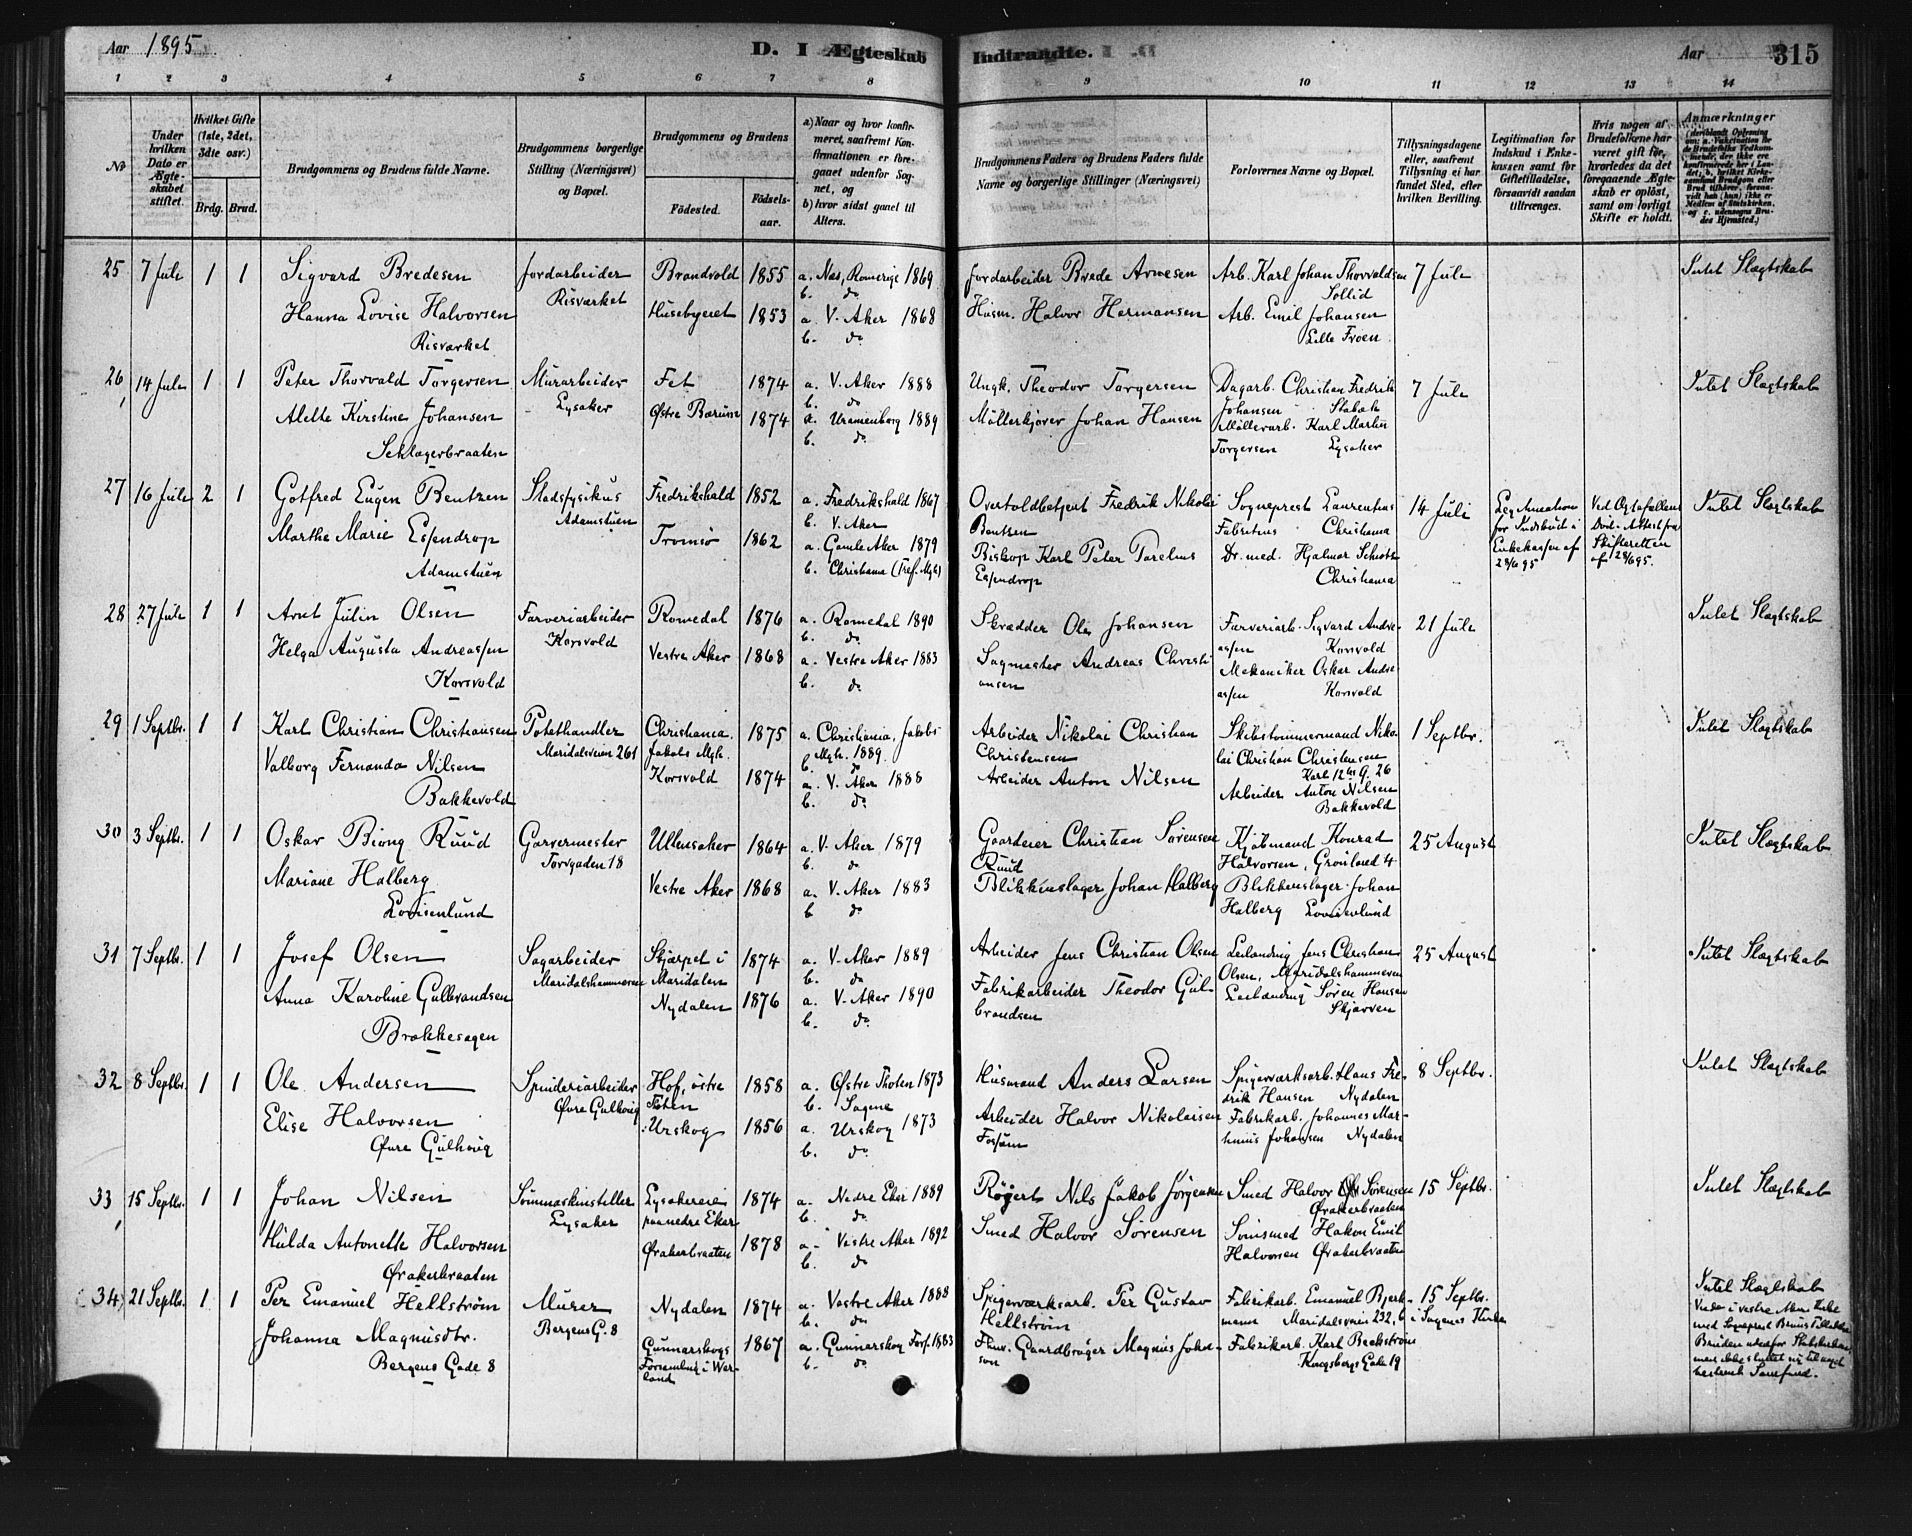 Aar 1895
D. I Ægteskab Indtraadte.
Aar 315
1 2 3 4 5 6 7 8 9 10 11 12 13 14
No
Under hvilken Dato er Ægteskabet stiftet.
Hvilket Gifte (1ste, 2det, 3die osv.)
Brdg. Brud.
Brudgommens og Brudens fulde Navne.
Brudgommens borgerlige Stilling (Næringsvei) og Bopæl.
Brudgommens og Brudens
Fødested.
Fødselsaar.
a) Naar og hvor konfirmeret, saafremt Konfirmationen er foregaaet udenfor Sognet, og
b) hvor sidst gaaet til Alters.
Brudgommens Faders og Brudens Faders fulde Navne og borgerlige Stillinger (Næringsvei)
Forlovernes Navne og Bopæl.
Tillysningsdagene eller, saafremt Tillysning ei har fundet Sted, efter hvilken Bevilling.
Legitimation for Indskud i Enkekassen samt for Giftetilladelse, forsaavidt saadan tiltrænges.
Hvis nogen af Brudefolkene har været gift før, hvorledes da det foregaaende Ægteskab er opløst, samt om lovligt Skifte er holdt.
Anmærkninger
25 7 Juli 1 1 Sigvard Bredesen Jordarbeider Brandvold 1855 a. Næs, Romerige 1869 Jordarbeider Brede Arnesen Arb. Karl Johan Thorvaldsen 7 Juli Intet Slægtskab
Risværket b. do Sollid
Hanna Lovise Halvorsen Husebygeret 1853 a. V. Aker 1868 Husm. Halvor Hermansen Arb. Emil Johansen
Risværket b. do Lille Frøen
26 14 Juli 1 1 Peter Thorvald Torgersen Murarbeider Fet 1874 a. V. Aker 1888 Ungk. Theodor Torgersen Dagarb. Christian Fredrik 7 Juli Intet Slægtskab
Lysaker b. do Johansen Stabæk
Alette Kirstine Johansen Østre Bærum 1874 a. Uranienborg 1889 Møllerkjører Johan Hansen Møllerarb. Karl Martin
Schlagerbraaten b. do Torgersen Lysaker
27 16 Juli 2 1 Gotfred Eugen Bentzen Stadsfysikus Fredrikshald 1852 a. Fredrikshald 1867 Overtoldbetjent Fredrik Nikolai Sogneprest Laurentius 14 Juli Legitimation Ved Ægtefællens Intet Slægtskab
Adamstuen b. V. Aker Bentzen Fabritius Christiania for Indskud i Død. Attest fra
Marthe Marie Essendrop Tromsø 1862 a. Gamle Aker 1879 Biskop Karl Peter Parelius Dr. med. Hjalmar Schiøtz Enkekassen af Skifteretten
Adamstuen b. Christiania (Tref. Mgh) Essendrop Christiania 28/6 95 af 28/6 95.
28 27 Juli 1 1 Arnt Julin Olsen Farveriarbeider Romedal 1876 a. Romedal 1890 Skrædder Ole Johansen Farveriarb. Sigvard Andre- 21 Juli Intet Slægtskab
Korsvold b. do assen Korsvold
Helga Augusta Andreassen Vestre Aker 1868 a. Vestre Aker 1883 Sagmester Andreas Christi Mekaniker Oskar Andre
Korsvold b. do ansen assen Korsvold
29 1 Septbr. 1 1 Karl Christian Christiansen Potethandler Christiania. 1875 a. Christiania, Jakobs Arbeider Nikolai Christian Skibstømmermand Niko- 1 Septbr. Intet Slægtskab
Maridalsveien 261 Jakobs Mgh. Mgh. 1889. Christensen lai Christian Christensen
Valborg Fernanda Nilsen Korsvold 1874 b. do Arbeider Anton Nilsen Karl 12tes G. 26
a. V. Aker 1888 Arbeider Anton Nilsen
Bakkevold b. do Bakkevold
30 3 Septbr. 1 1 Oskar Biong Ruud Garvermester Ullensaker 1864 a. V. Aker 1879 Gaardeier Christian Sørensen Kjøbmand Konrad 25 August Intet Slægtskab
Torvgaden 18 b. do Ruud Halvorsen, Grønland 4
Mariane Halberg Vestre Aker 1868 a. V. Aker 1883 Blikkenslager Johan Halberg Blikkenslager Johan
Lovisenlund b do Halberg Lovisenlund
31 7 Septbr. 1 1 Josef Olsen Sagarbeider Skjærpet i 1874 a. V. Aker 1889 Arbeider Jens Christian Olsen Leilænding Jens Christian 25 August Intet Slægtskab
Maridalshammeren Maridalen b. do Olsen, Maridalshammeren
Anna Karoline Gulbrandsen Nydalen 1876 a. V. Aker 1890 Fabrikarbeider Theodor Gul- Leilænding Søren Hansen
Brækkesagen b. do brandsen Skjærven
32 8 Septbr. 1 1 Ole Andersen Spinderiarbeider Hof, østre 1858 a. Østre Thoten 1873 Husmand Anders Larsen Spigerværksarb. Hans Fre- 8 Septbr. Intet Slægtskab
Øvre Gulhoug Toten b. Sagene drik Hansen Nydalen
Elise Halvorsen Urskog 1856 a. Urskog 1873 Arbeider Halvor Nikolaisen Fabrikarb. Johannes Mar-
Øvre Gulhoug b. do Fossum thinius Johansen Nydalen
33 15 Septbr. 1 1 Johan Nilsen Sømmaskinstiller 1874 a. Nedre Eker 1889 Røgert Nils Jakob Jørgensen Smed Halvor Sørensen 15 Septbr. Intet Slægtskab
Lysaker paa nedre Eker b. do Ørakerbraaten
Hilda Antonette Halvorsen Ørakerbraaten 1878 a. Vestre Aker 1892 Smed Halvor Sørensen Sømsmed Hakon Emil
Ørakerbraaten b. do Halvorsen Ørakerbraaten
34 21 Septbr. 1 1 Per Emanuel Hellstrøm Murer Nydalen 1874 a. Vestre Aker 1888 Spigerværksarb. Per Gustav Fabrikarb. Emanuel Bjerk- 15 Septbr. Intet Slægtskab
Bergens G. 8 b. do Hellstrøm mann Maridalsveien 232, b i Sagenes Kirke Viede i vestre Akers Kirke
Johanna Magnusdtr. Gunnarskogs 1867 a. Gunnarskog Fors. 1883 Gaardbruger Magnus John- Fabrikarb. Karl Beckstrøm
Bergens Gade 8 i Wermland b. do son Kingsbergs Gade 19